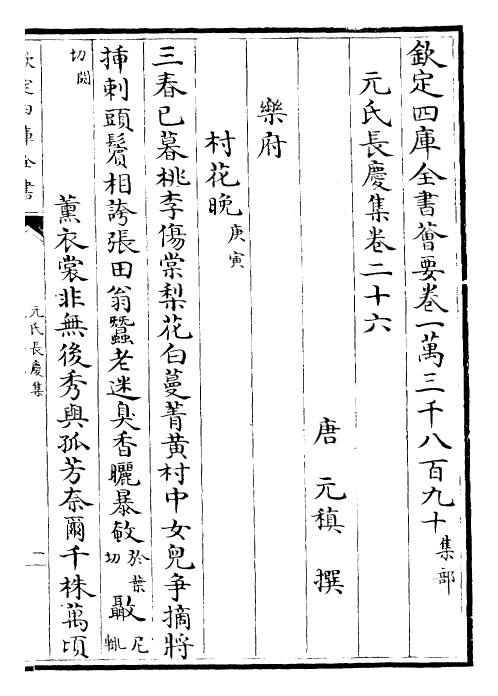 欽定四庫全書薈要卷一萬三千八百九十 集部
元氏長慶集卷二十六
唐 元稹 撰
樂府
村花晚 庚寅
三春已暮桃李傷棠梨花白蔓菁黃村中女兒爭摘將
揷刺頭鬢相誇張田翁蠶老迷臭香曬暴 於葉切 尼輒
切 薰衣裳非無後秀與孤芳奈爾千株萬頃
欽定四庫全書
元氏長慶集